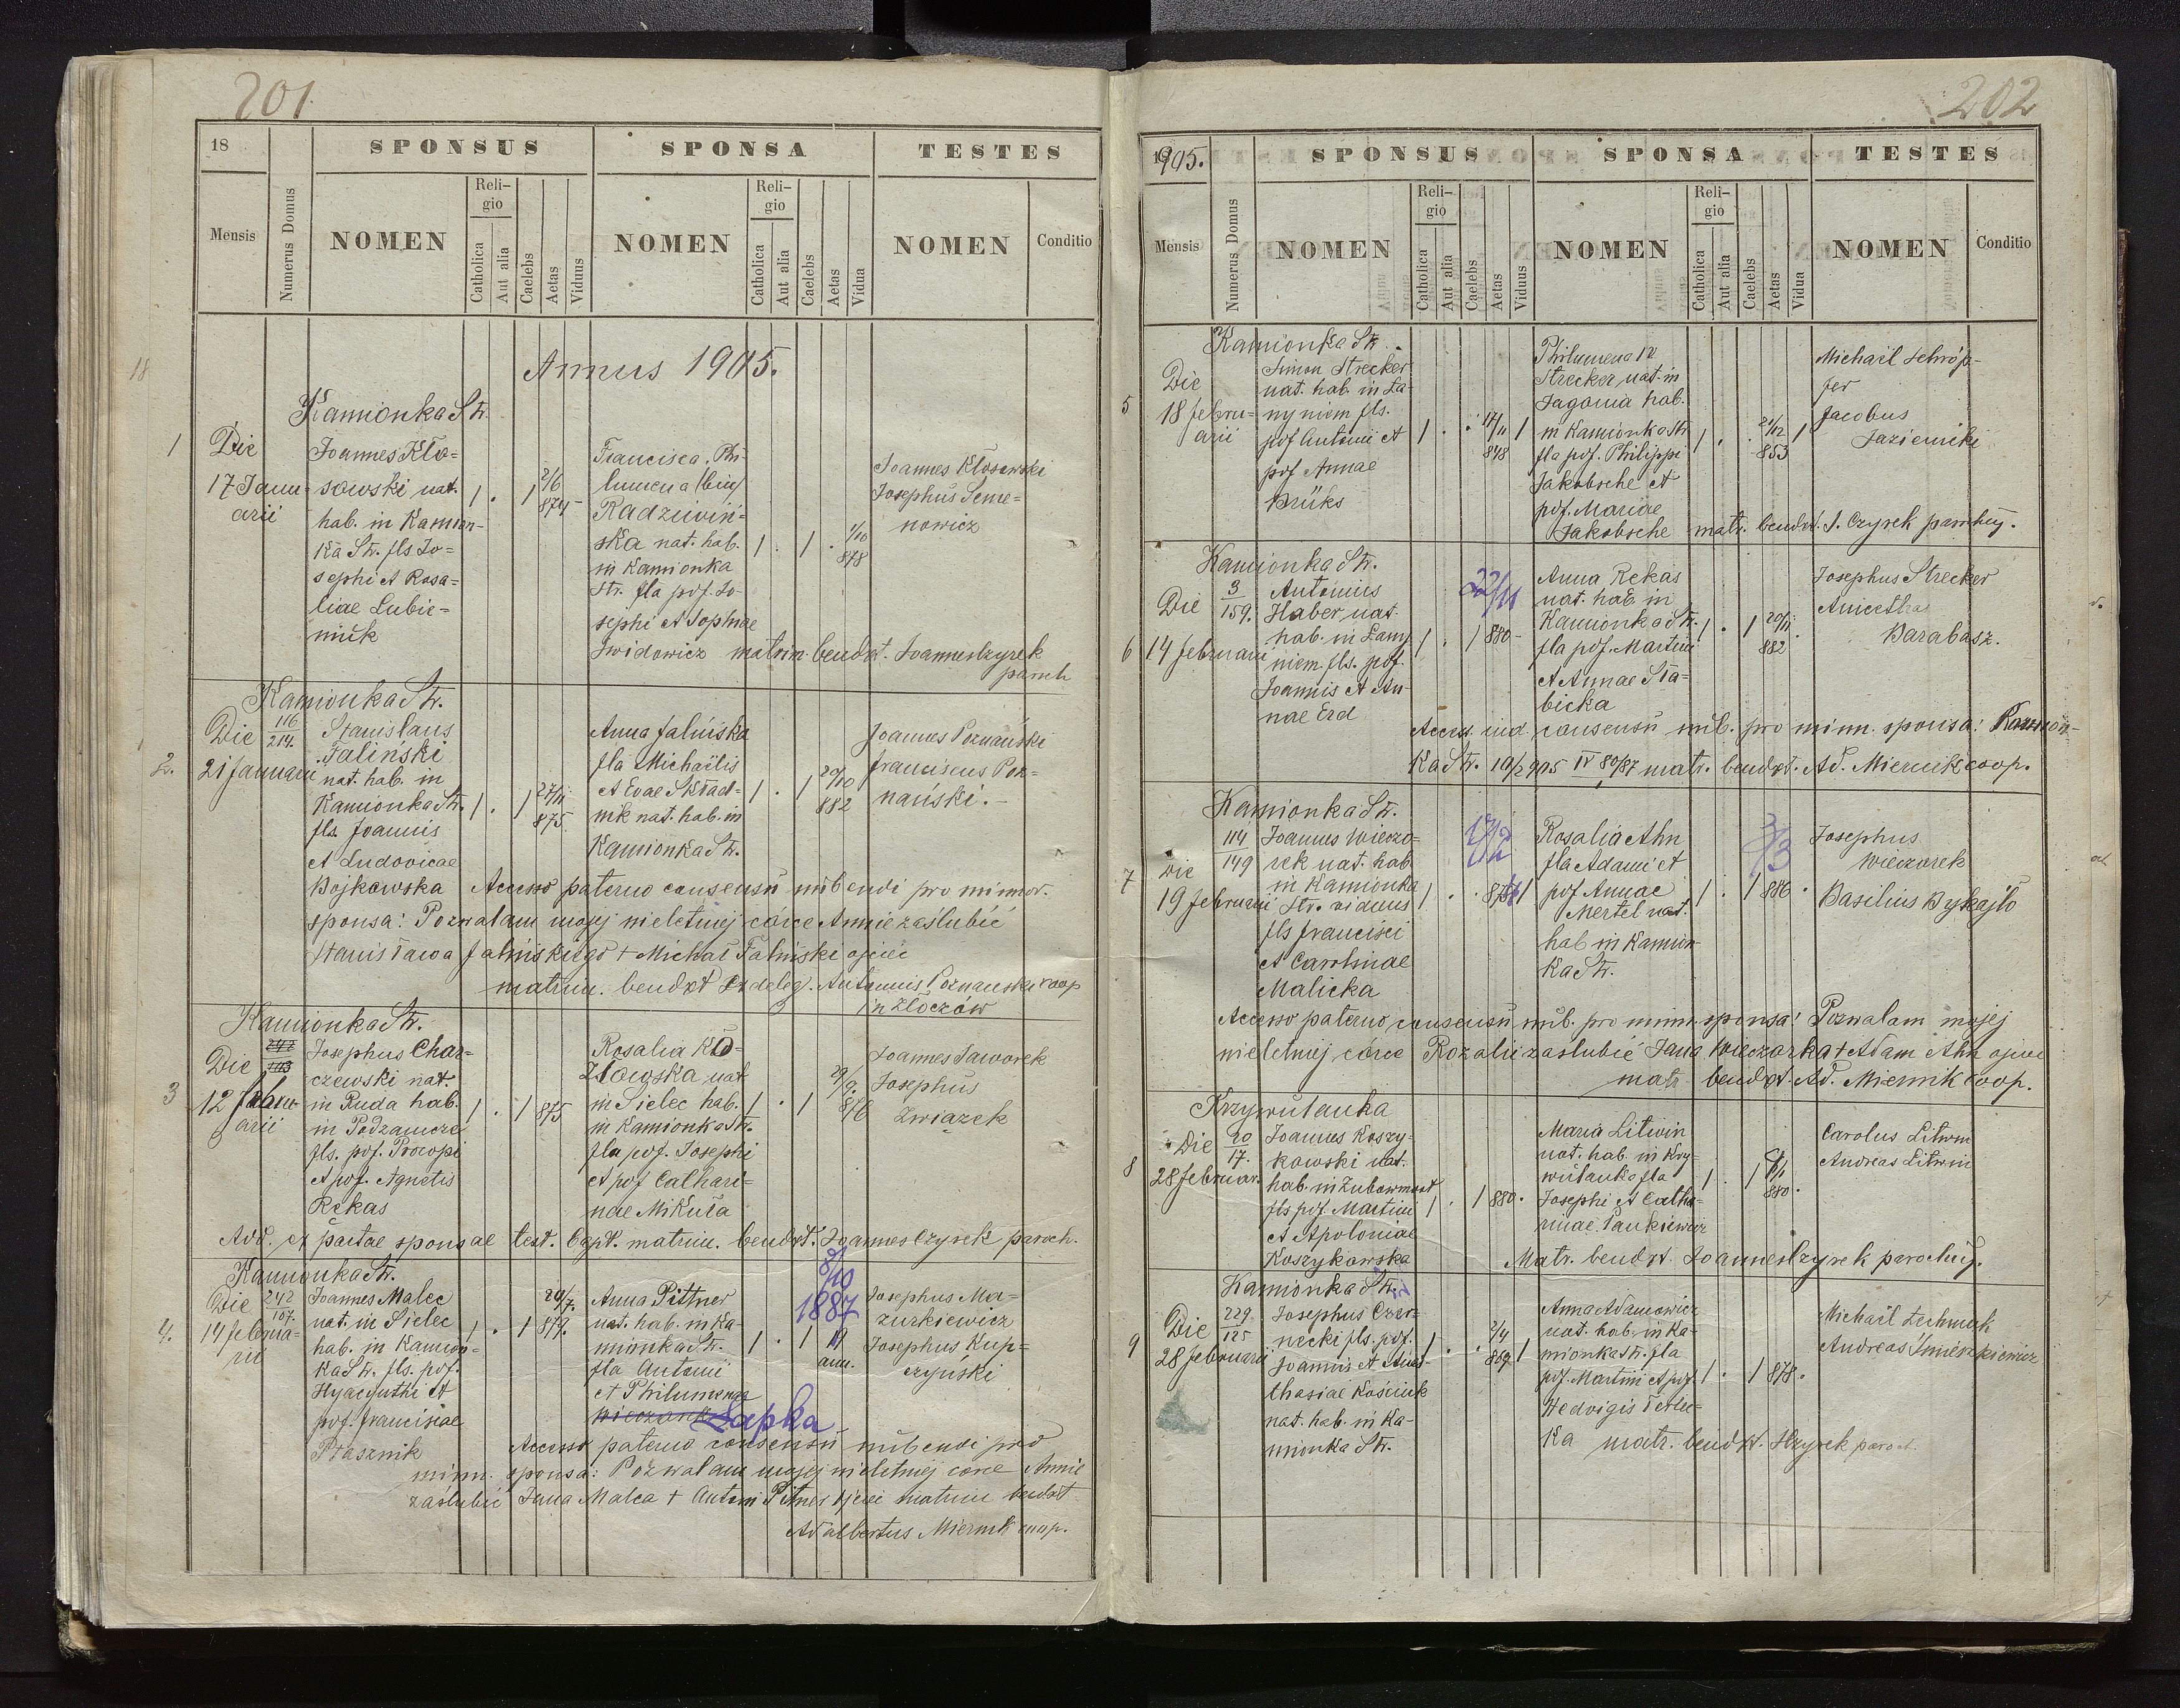 201
18
SPONSUS
SPONSA
TESTES
Mensis
Numerus Domus
NOMEN
Reli-
gio
Catholica
Aut alia
Caelebs
Aetas
Viduus
NOMEN
Reli-
gio
Catholica
Aut alia
Caelebs
Aetas
Vidua
NOMEN
Conditio
Annus 1905.
1
Kamionka Str.
Die
17 Janu-
arii
Joannes Kło-
sowski nat.
hab. in Kamion-
ka Str. fls Jo-
sephi et Rosa-
liae Lubie-
niuk
1 . 1 2/6
874
Francisca Phi-
lumena (bin)
Radziwiń-
ska nat. hab.
in Kamionka
Str. fla pof. Jo-
sephi et Sophiae
Swidowicz
1 . 1 . 1/10
878
Joannes Kłosowski
Josephus Seme-
nowicz
matrim. bendxt. Joannes Czyrek
paroch
2.
Kamionka Str.
Die
21 Januarii
116
214.
Stanislaus
Faliński
nat. hab. in
Kamionka Str.
fls. Joannis
et Ludovicae
Bojkowska
1 . 1 27/11
875
Anna Falińska
fla Michaëlis
et Evae Skład-
nik nat. hab. in
Kamionka Str.
1 . 1 20/10
882
Joannes Poznański
Franciscus Poz-
nański.
Accesso paterno consensu nubendi pro minor.
sponsa: Pozwalam mojej nieletniej córce Annie zaślubić
Stanisława Falińskiego + Michał Faliński ojciec
matrim. bendxt ex deleg. Antonius Poznański coop
in Złoczów
3
Kamionka Str.
Die
12 Febru-
arii
Josephus Char-
czewski nat.
in Ruda hab.
in Podzamcze
fls. pof. Procopi
et pof. Agnetis
Rekas
1 . 1 875
Rosalia Ko-
złowska nat
in Sielec hab.
in Kamionka Str.
fla pof. Josephi
et pof Cathari-
nae Mikuła
1 . 1 29/9.
876
Joannes Jaworek
Josephus
Związek
Add. ex partae sponsae test. bapt. matrim. bendxt. Joannes Czyrek paroch.
4.
Kamionka Str.
Die
14 Februa-
rii
242
107.
Joannes Malec
nat. in Sielec
hab. in Kamion-
ka Str. fls. pof.
Hyacynthi et
pof. Franciscae
Ptasznik
1 . 1 24/7.
879.
Anna Pittner
nat. hab. in Ka-
mionka Str.
fla Antonii
et Philumenae
Łapka
8/10
1887
1 . 1 19
ann.
Josephus Ma-
zurkiewicz
Josephus Kup-
czyński
Accesso paterno consensu nubendi pro
minn. sponsa: Pozwalam mojej nieletniej córce Annie
zaślubić Jana Malca + Antoni Pitner ojciec matrim bendxt
Adalbertus Miernik coop.
202
1905.
SPONSUS
SPONSA
TESTES
Mensis
Numerus Domus
NOMEN
Reli-
gio
Catholica
Aut alia
Caelebs
Aetas
Viduus
NOMEN
Reli-
gio
Catholica
Aut alia
Caelebs
Aetas
Vidua
NOMEN
Conditio
5
Kamionka Str.
Die
18 Febru-
arii
Simon Strecker
nat. hab. in Ła-
ny niem fls.
pof Antonii et
pof Annae
Brüks
1 . . 17/11 1
848
Philumena
Strecker nat. in
Jagonia hab.
in Kamionka Str.
fla pof. Philippi
Jakobsche et
pof. Mariae
Jakobsche
1 . . 21/12 1
853
Michaël Schröp-
fer
Jacobus
Jazienicki
matr. bendxt. J. Czyrek parochus.
6
Kamionka Str.
Die
14 Februarii
3
159.
Antonius
Haber nat.
hab. in Łany
niem. fls. pof.
Joannis et An-
nae Erd
22/11
1 . 1 880
Anna Rekas
nat. hab. in
Kamionka Str.
fla pof. Martini
et Annae Sta-
bicka
1 . 1 20/11 .
882
Josephus Strecker
Barabasz.
Access. iud. consensu nub. pro minn. sponsa: Kamion-
ka Str. 10/2 905 IV 80/87 matr. bendxt. Ad. Miernik coop.
7
Kamionka Str.
Die
19 Februarii
114
149
Joannes Wieczo-
rek nat. hab.
in Kamionka
Str. viduus
fls Francisci
et Carolinae
Malicka
1 . . 876 1
Rosalia Ahn
fla Adami et
pof Annae
Mertel nat.
hab in Kamion-
ka Str.
1 . 1 886 .
Josephus
Wieczorek
Basilius Bykajło
Accesso paterno consensu nub. pro minn. sponsa: Pozwalam mojej
nieletniej córce Rozalii zaślubić Jana Wieczorka + Adam Ahn ojciec
matr bendxt. Ad. Miernik coop.
8
Krzywulanka
Die
28 Februar.
20
17.
Joannes Koszy-
kowski nat.
hab. in Zubowmost
fls pof. Martini
et Apoloniae
Koszykowska
1 . 1 880.
Maria Litwin
nat. hab. in Krzy-
wulanka fla
Josephi et Catha-
rinae Pankiewicz
1 . 1 880.
Carolus Litwin
Andreas Litwin
Matr. bendxt. Joannes Czyrek parochus.
9
Kamionka Str.
Die
28 Februarii
229
125
Josephus Czer-
necki fls. pof.
Joannis et Anas-
thasiae Kościuk
nat. hab. in Ka-
mionka Str.
1 . . 2/4 1
859
Anna Adamowicz
nat. hab. in Ka-
mionka Str. fla
pof. Martini et pof.
Hedvigis
1 . 1 878.
Michaël Lechniuk
Andreas Śnieszkiewicz
matr. bendxt. Czyrek paroch.